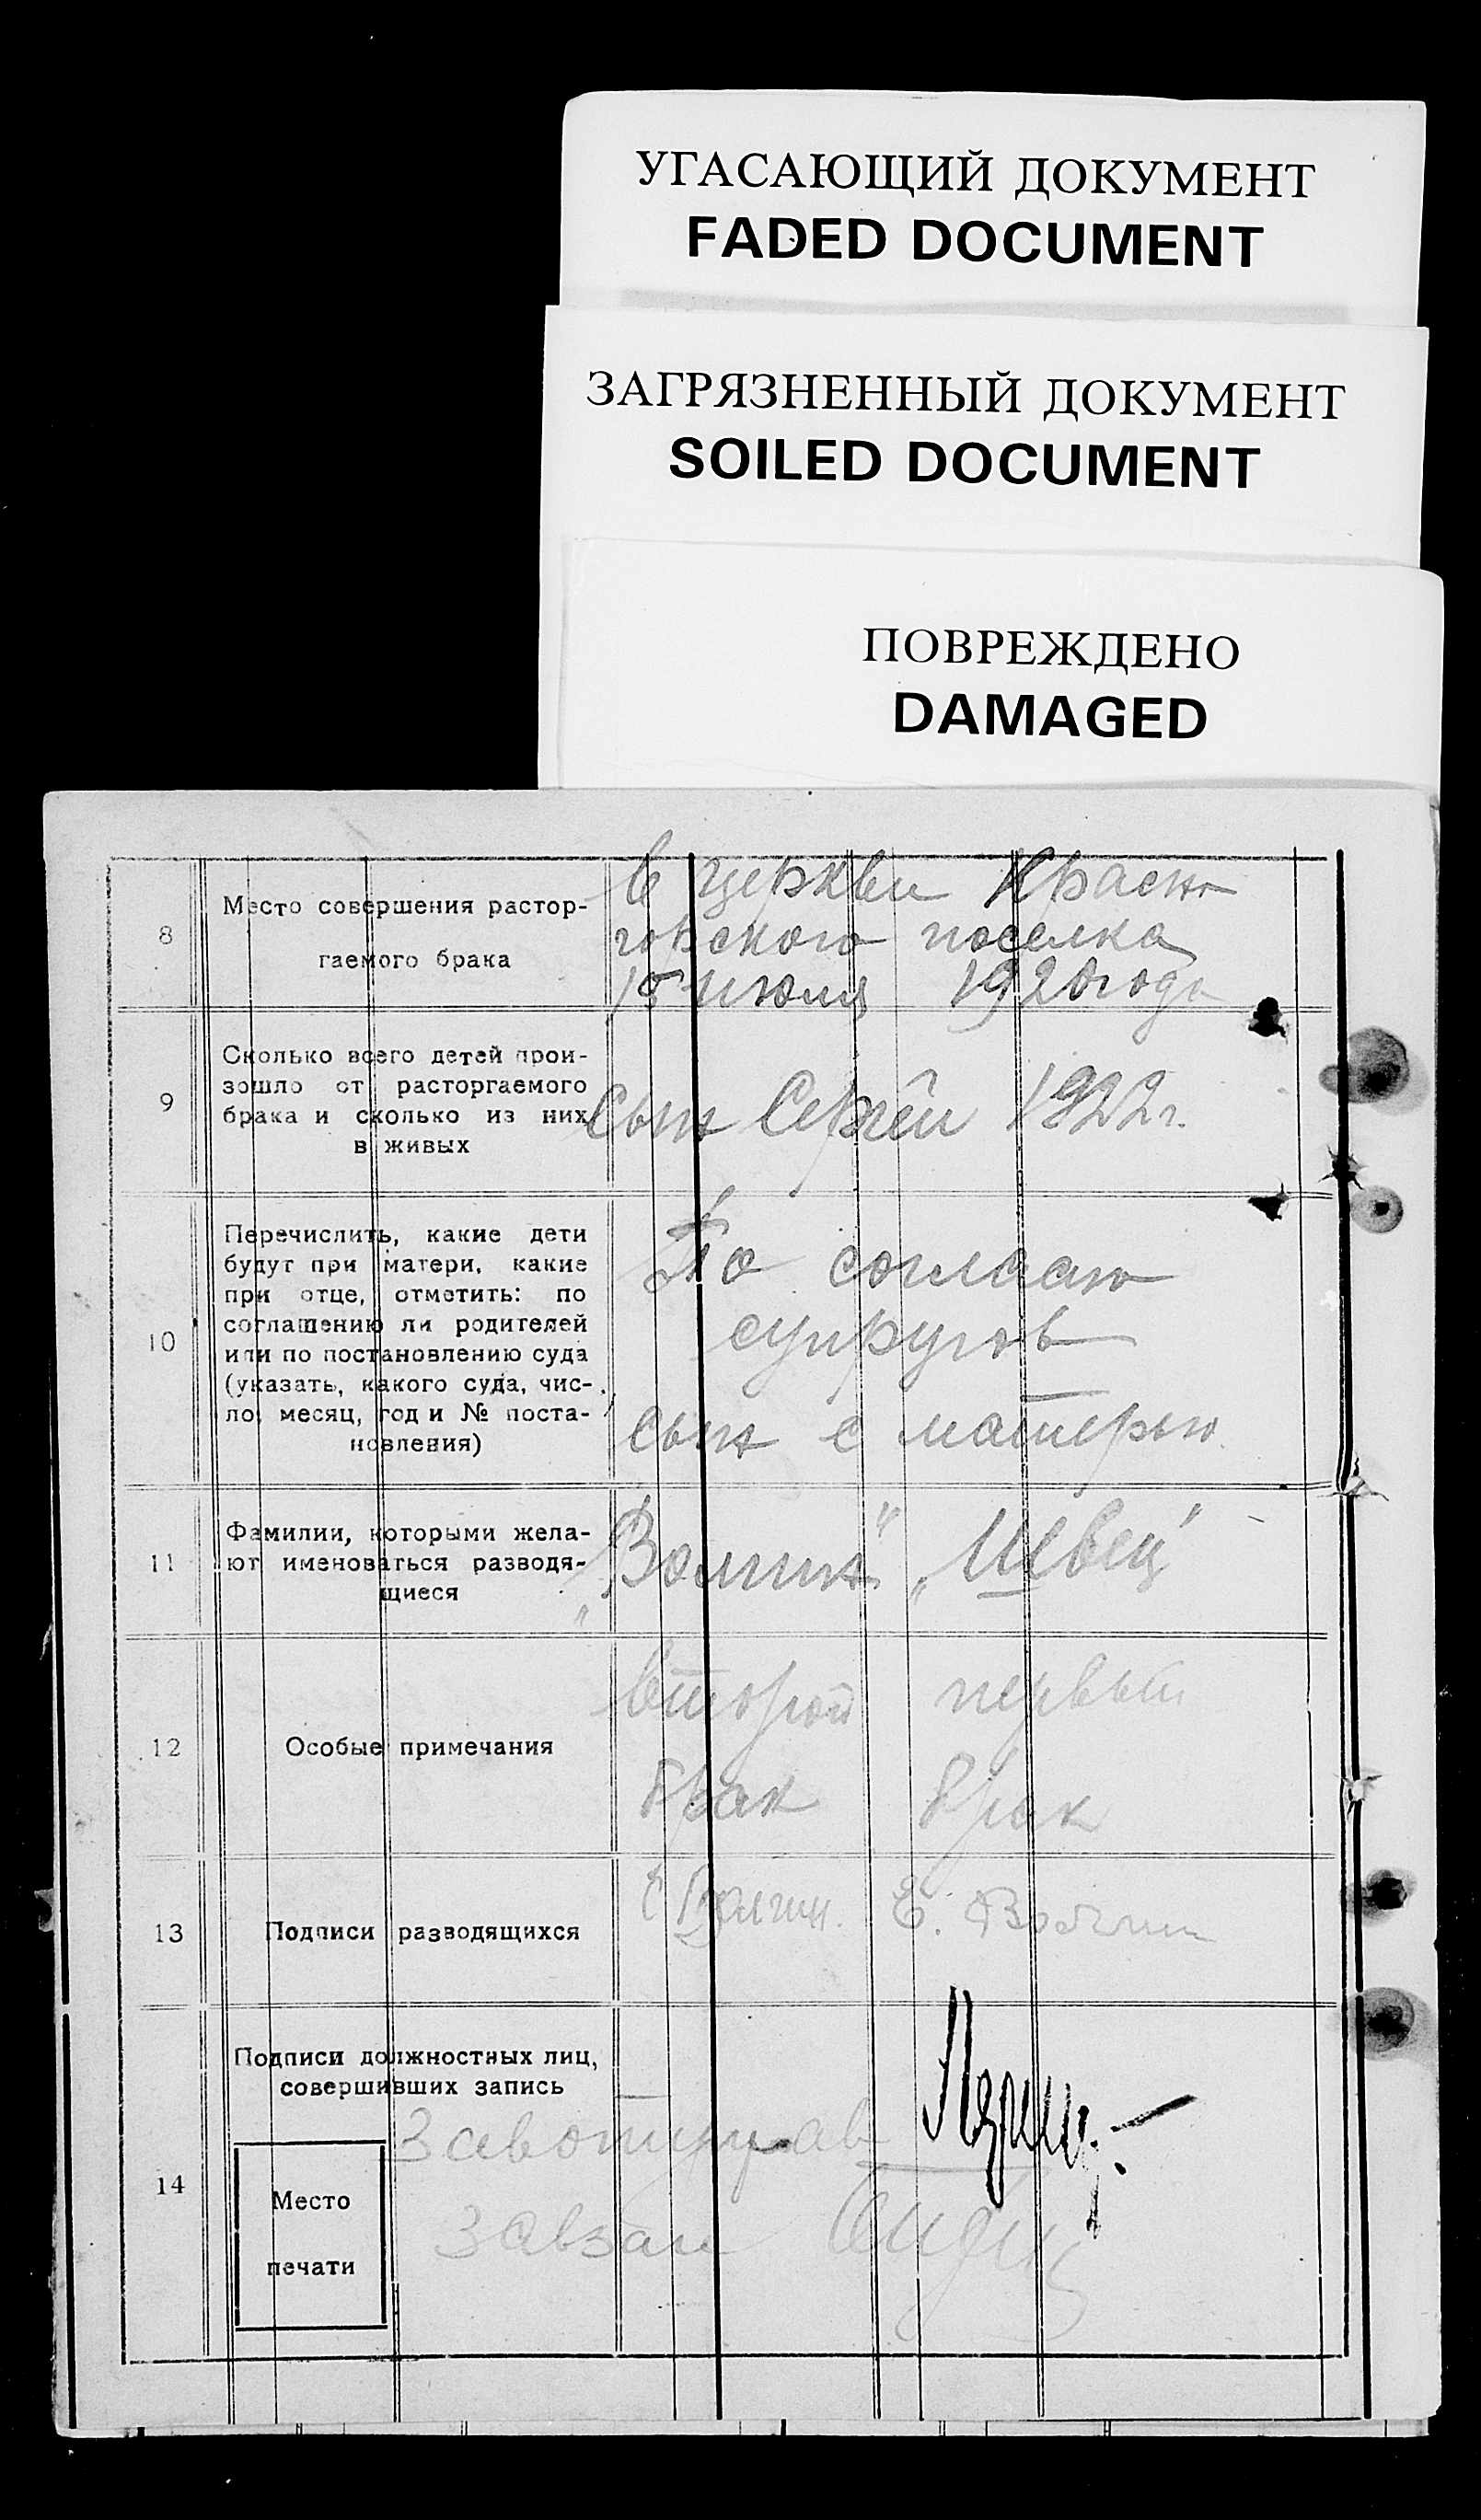 УГАСАЮЩИЙ ДОКУМЕНТ
FADED DOCUMENT
ЗАГРЯЗНЕННЫЙ ДОКУМЕНТ
SOILED DOCUMENT
ПОВРЕЖДЕНО
DAMAGED
8
Место совершения растор-
гаемого брака
в церкви Красно
горского поселка
15 июля 1920 года
9
Сколько всего детей прои-
зошло от расторгаемого
брака и сколько из них
в живых
Сын Сергей 1922 г.
10
Перечислить, какие дети
будут при матери, какие
при отце, отметить: по
соглашению ли родителей
или по постановлению суда
(указать, какого суда, чис-
ло, месяц, год и № поста-
новления)
По согласию
супругов
сын с матерью
11
Фамилии, которыми жела-
ют именоваться разводя-
щиеся
„Волгин" „Швец"
12
Особые примечания
второй первый
брак брак
13
Подписи разводящихся
Волгин. Е. Волгин
14
Подписи должностных лиц,
совершивших запись
Место
печати
Завзаг